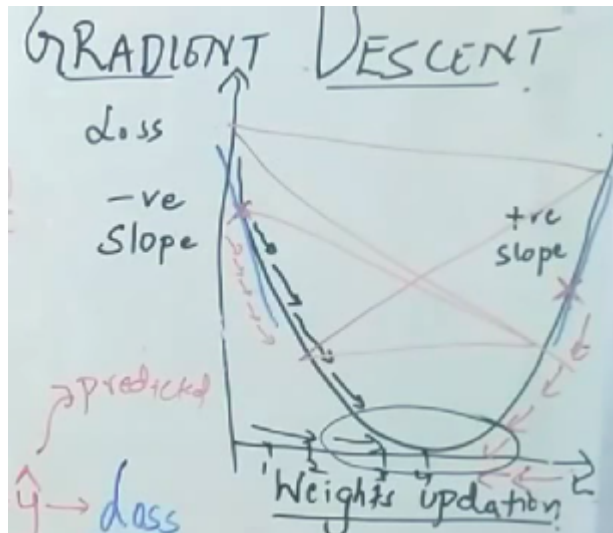 GRADIENT DESCENT
Loss
-ve
slope
+ve
slope
predicted
1 2 3 4
Weights updation
ŷ → Loss